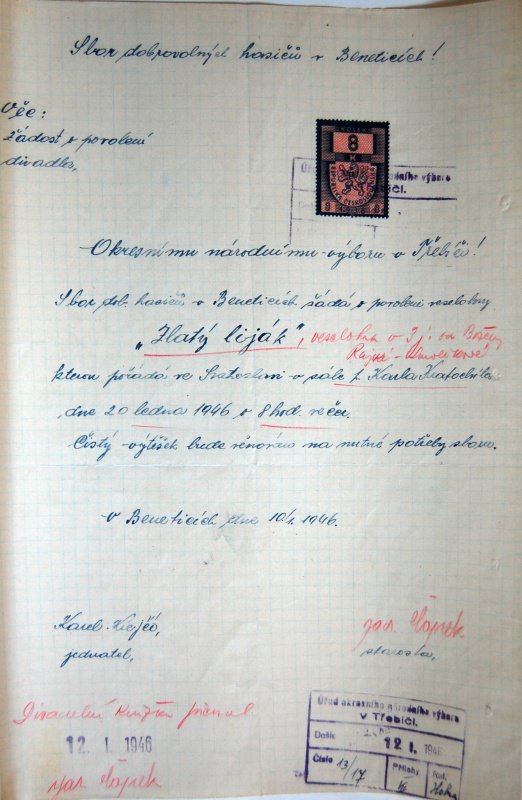 Sbor dobrovolných hasičů v Beneticích!
Věc:
Žádost o povolení
divadla.
KOLEK
8
K
REPUBLIKA ČESKOSLOVENSKÁ
8 8
Okresnímu národnímu výboru v Třebíči!
Sbor dob. hasičů v Beneticích žádá o povolení veselohry
„Zlatý liják", veselohra o 3 j. od Boženy
kterou pořádá ve Svatoslavi v sále p. Karla Kratochvíla
dne 20 ledna 1946 o 8 hod. večer.
Čistý výtěžek bude věnován na nutné potřeby sboru.
V Beneticích dne 10/1. 1946.
Karel Krejčí,
jednatel,
Jar. Čápek
starosta,
Divadelní
12. I. 1946
Jar. Čápek
Úřad okresního národního výboru
v Třebíči.
Došlo 12 I. 1946
Číslo 13/17 Přílohy Kol.